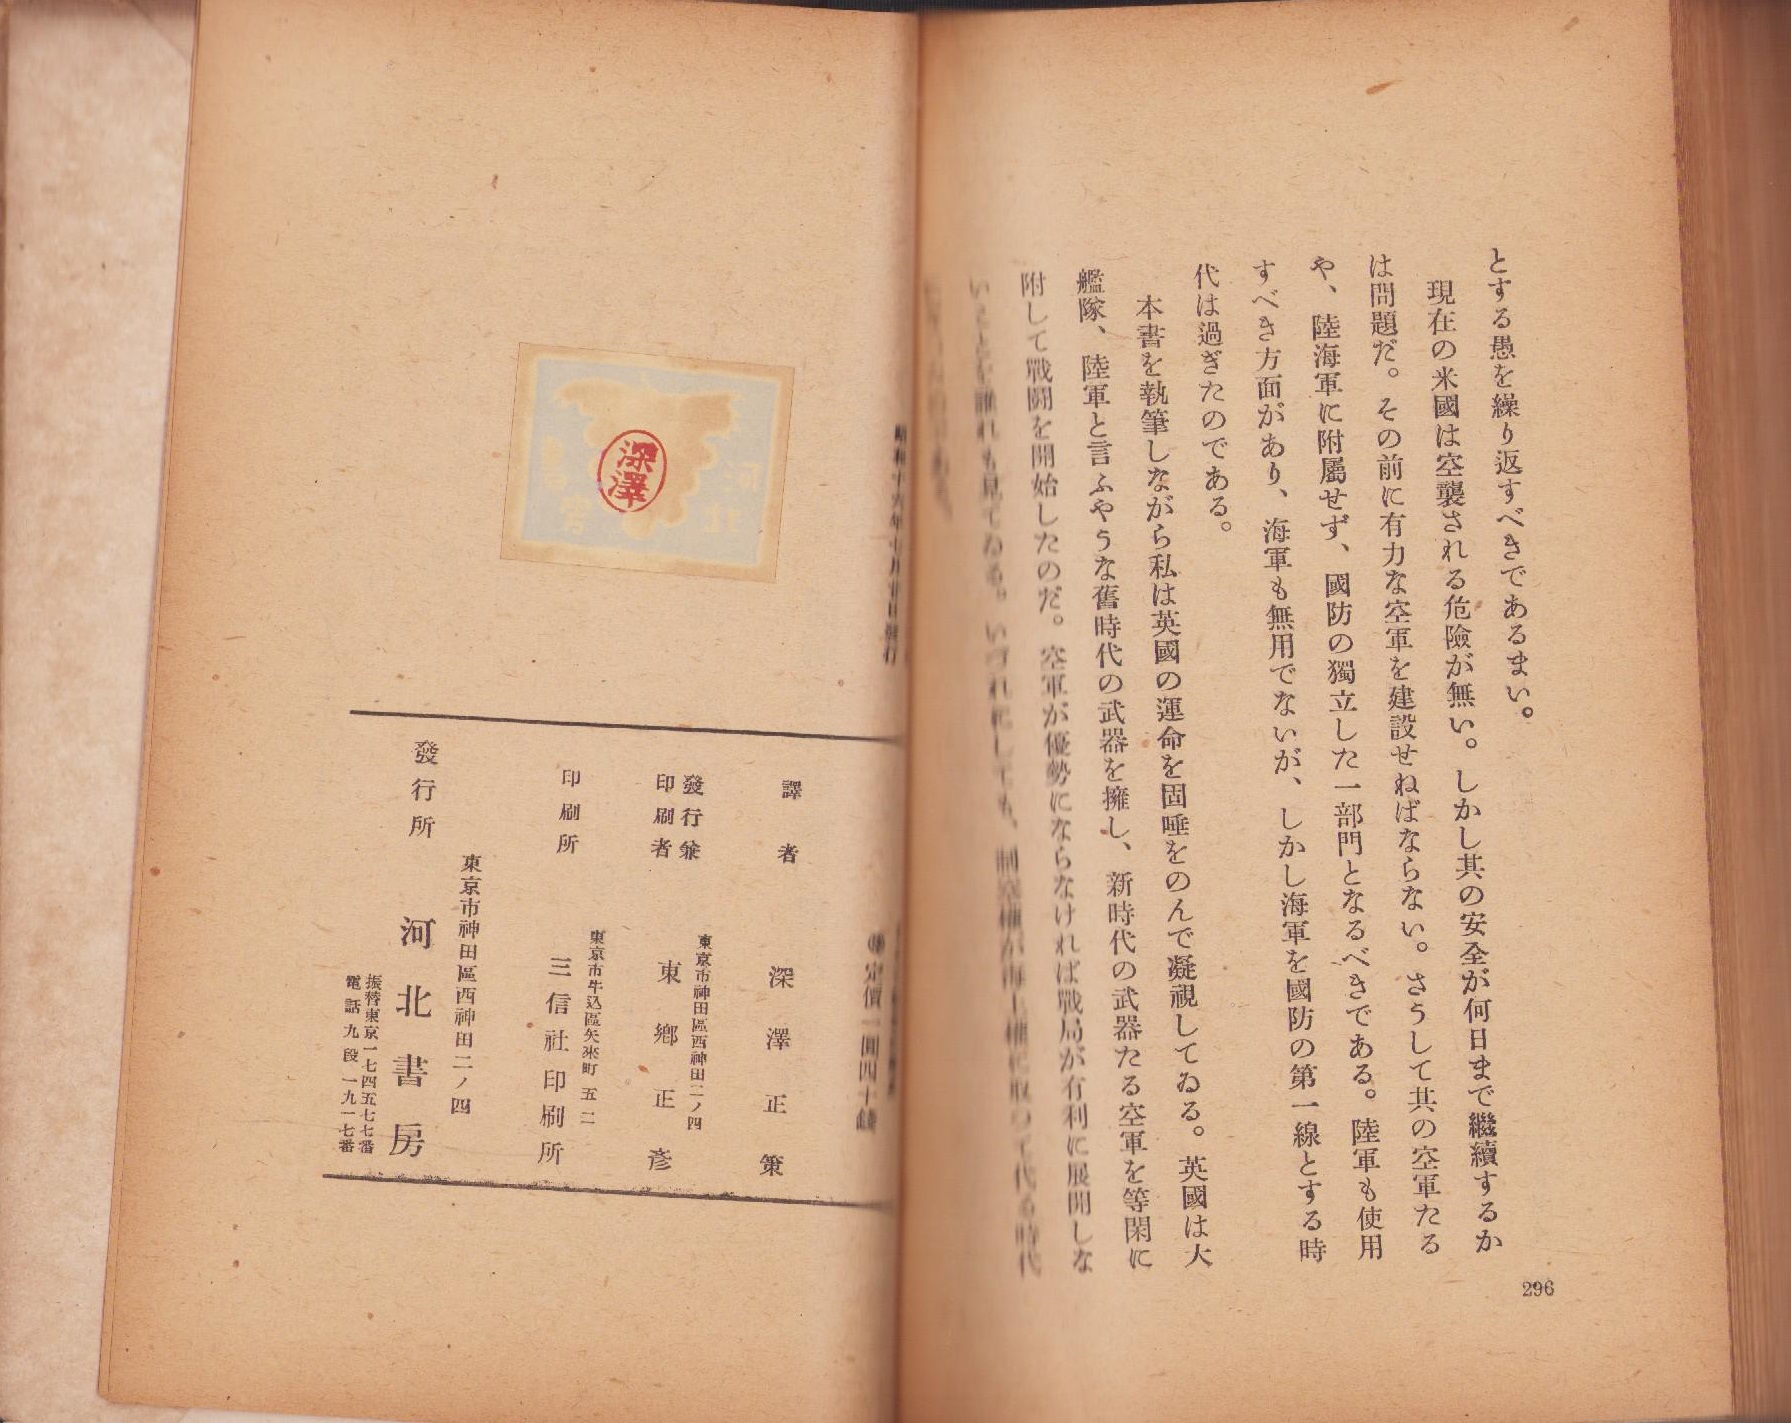 とする愚を繰り返すべきであるまい。
現在の米國は空襲される危險が無い。しかし其の安全が何日まで繼續するか
は問題だ。その前に有力な空軍を建設せねばならない。さうして其の空軍たる
や、陸海軍に附屬せず、國防の獨立した一部門となるべきである。陸軍も使用
すべき方面があり、海軍も無用でないが、しかし海軍を國防の第一線とする時
代は過ぎたのである。
本書を執筆しながら私は英國の運命を固唾をのんで凝視してゐる。英國は大
艦隊、陸軍と言ふやうな舊時代の武器を擁し、新時代の武器たる空軍を等閑に
附して戰鬪を開始したのだ。空軍が優勢にならなければ戰局が有利に展開しな
いことを誰れも見てゐる。いづれにしても、制空權が海上權に取つて代る時代
296
昭和十六年七月廿日發行
定價一圓四十錢
譯者 深澤正策
發行兼
印刷者
東京市神田區西神田二ノ四
東鄕正彥
印刷所
東京市牛込區矢來町五二
三信社印刷所
發行所
東京市神田區西神田二ノ四
河北書房
振替東京一七四五七七番
電話九段一九一七番
深澤